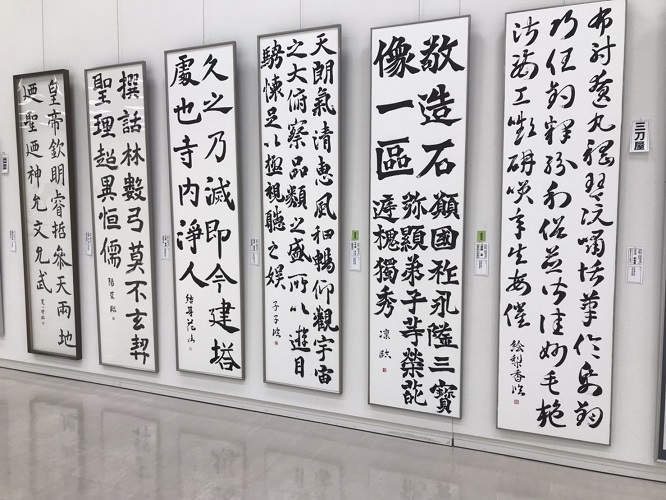 布射遼丸嵇琴阮嘯恬筆倫紙鈞
巧任釣釋紛利俗並皆佳妙毛施
淑姿工嚬妍笑年矢每催
絵梨香臨
三刀屋
敬造石
像一區
願國祚永隆三寶
弥顯弟子等榮
庭槐獨秀
凛 臨
天朗氣清恵風和暢仰觀宇宙
之大俯察品類之盛所以遊目
騁懐足以極視聴之娯
久之乃滅即今建塔
處也寺内淨人
撰話林數弓莫不玄契
聖理超異恒儒
皇帝欽明睿哲叅天兩地
廼聖廼神允文允武